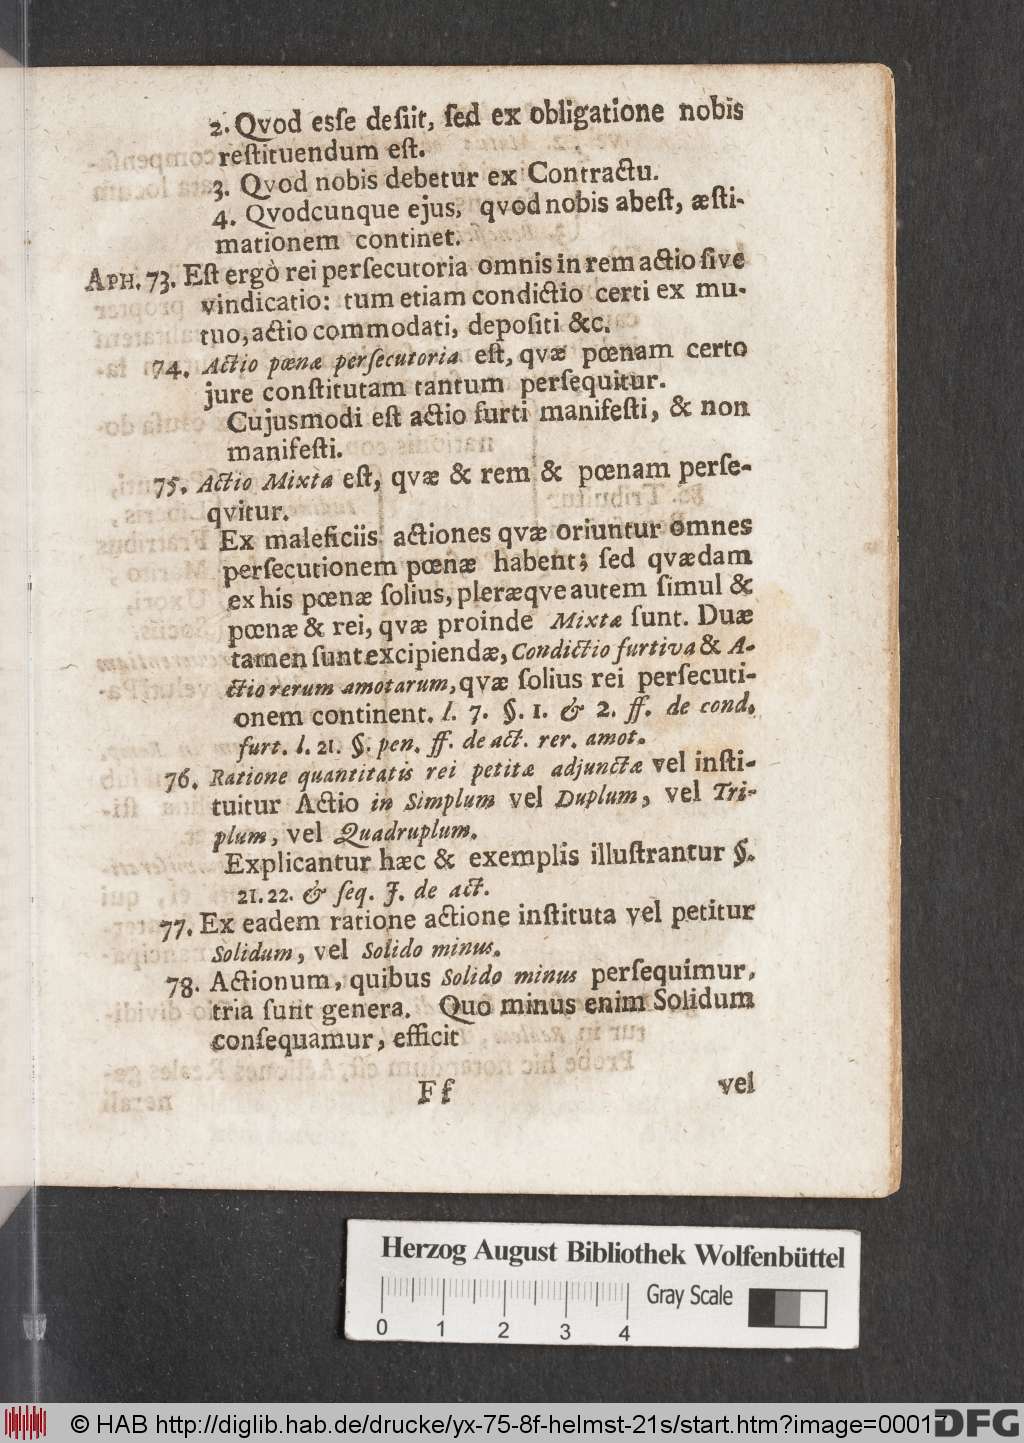 2. Qvod eſſe deſiit, ſed ex obligatione nobis
reſtituendum eſt.
3. Qvod nobis debetur ex Contractu.
4. Qvodcunque ejus, qvod nobis abeſt, æſti-
mationem continet.
APH. 73. Eſt ergò rei perſecutoria omnis in rem actio ſive
vindicatio: tum etiam condictio certi ex mu-
tuo, actio commodati, depoſiti &c.
74. Actio pœnæ perſecutoria eſt, qvæ pœnam certo
jure conſtitutam tantum perſequitur.
Cujusmodi eſt actio furti manifeſti, & non
manifeſti.
75. Actio Mixta eſt, qvæ & rem & pœnam perſe-
qvitur.
Ex maleficiis actiones qvæ oriuntur omnes
perſecutionem pœnæ habent; ſed qvædam
ex his pœnæ ſolius, pleræqve autem ſimul &
pœnæ & rei, qvæ proinde Mixtæ ſunt. Duæ
tamen ſunt excipiendæ, Condictio furtiva & A-
ctio rerum amotarum, qvæ ſolius rei perſecuti-
onem continent. l. 7. §. 1. & 2. ff. de cond.
furt. l. 21. §. pen. ff. de act. rer. amot.
76. Ratione quantitatis rei petitæ adjunctæ vel inſti-
tuitur Actio in Simplum vel Duplum, vel Tri-
plum, vel Quadruplum.
Explicantur hæc & exemplis illuſtrantur §.
21. 22. & ſeq. J. de act.
77. Ex eadem ratione actione inſtituta vel petitur
Solidum, vel Solido minus.
78. Actionum, quibus Solido minus perſequimur,
tria ſunt genera. Quo minus enim Solidum
conſequamur, efficit
Ff vel
Herzog August Bibliothek Wolfenbüttel
Gray Scale
0 1 2 3 4
© HAB http://diglib.hab.de/drucke/yx-75-8f-helmst-21s/start.htm?image=00017
DFG